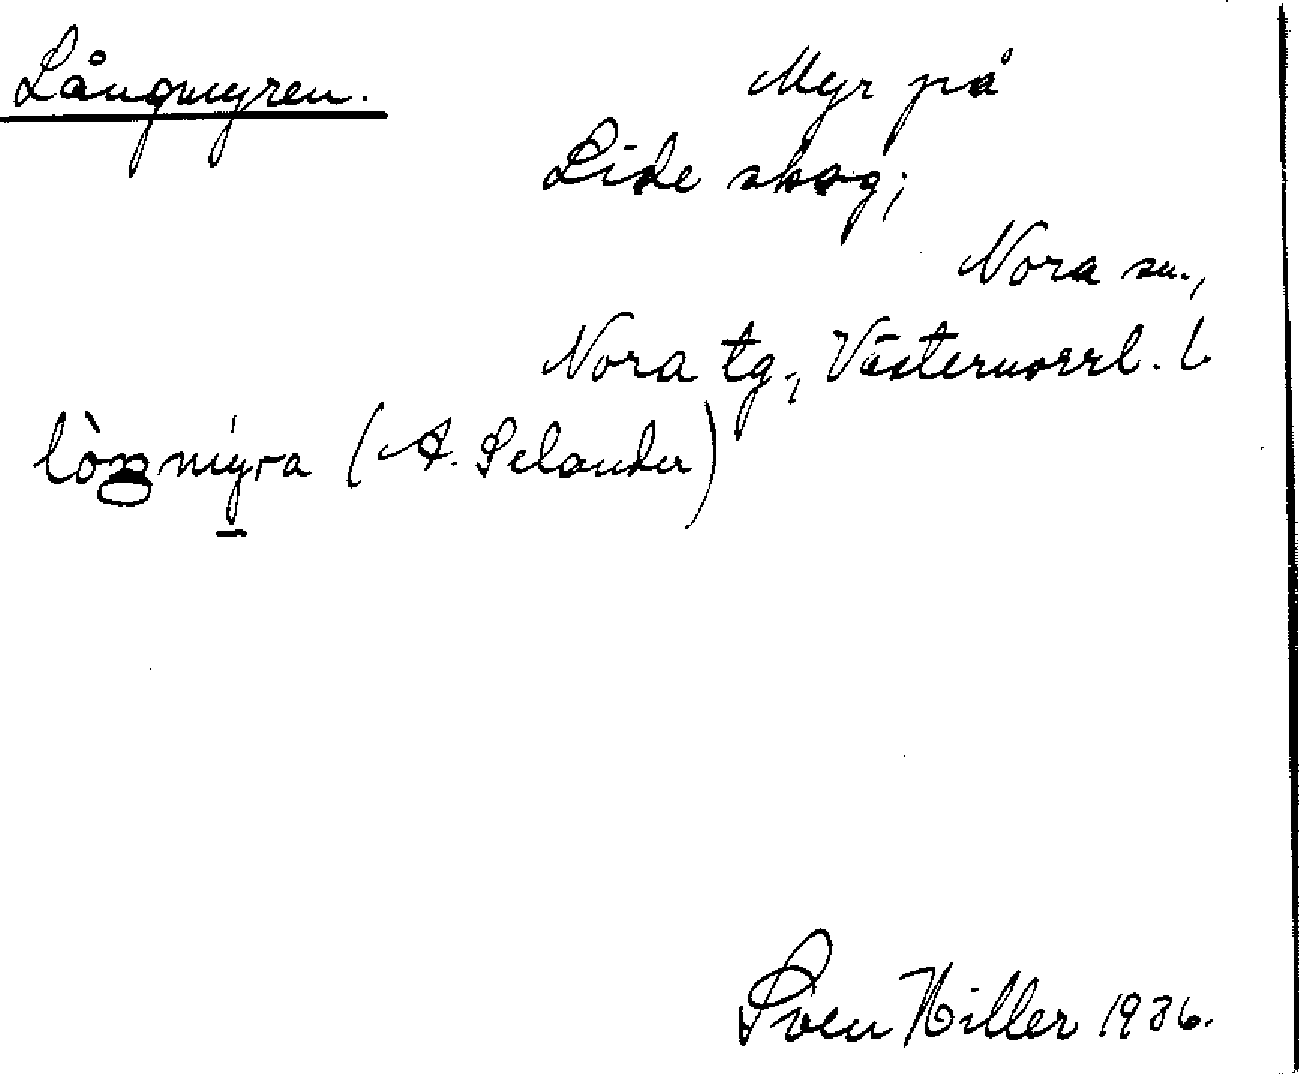 Långmyren.
Myr på
Lide skog;
Nora sn.,
Nora tg., Västernorrl. l
(A. Selander)
Sven Hiller 1936.